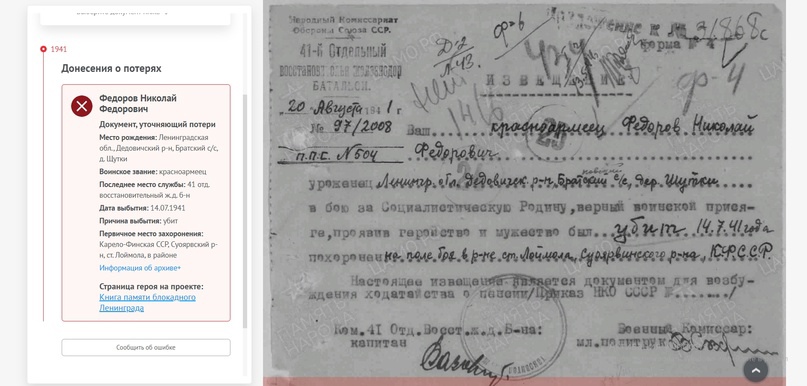 1941
Донесения о потерях
Федоров Николай
Федорович
Документ, уточняющий потери
Место рождения: Ленинградская
обл., Дедовичский р-н, Братский с/с,
д. Щутки
Воинское звание: красноармеец
Последнее место службы: 41 отд.
восстановительный ж.д. б-н
Дата выбытия: 14.07.1941
Причина выбытия: убит
Первичное место захоронения:
Карело-Финская ССР, Суоярвский р-
н, ст. Лоймола, в районе
Информация об архиве+
Страница героя на проекте:
Книга памяти блокадного
Ленинграда
Сообщить об ошибке
Народный Комиссариат
Обороны Союза ССР.
41-й Отдельный
восстановит.олен железнодор
БАТАЛЬОН.
ф-в
Д-2
Л.43.
к № 31868с
Форма № 4
ИЗВЕЩЕНИЕ
ф-4
„20" Августа 1941 г
№ 97/2008
п.п.с. N 504
Ваш красноармеец Федоров Николай
Федорович
уроженец Ленингр. обл. Дедовичск. р-н, Братский с/с, дер. Шутки
в бою за Социалистическую Родину, верный воинской прися-
ге, проявив геройство и мужество был убит 14.7.41 года
похоронен на поле боя в р-не ст. Лоймола, Суоярвинского р-на, К.Ф.С.С.Р
Настоящее извещение является документом для возбу-
ждения ходатайства о пенсии/Приказ НКО СССР №
Ком. 41 Отд. Восст. ж.д. Б-на:
капитан
Военный Комиссар:
мл. политрук